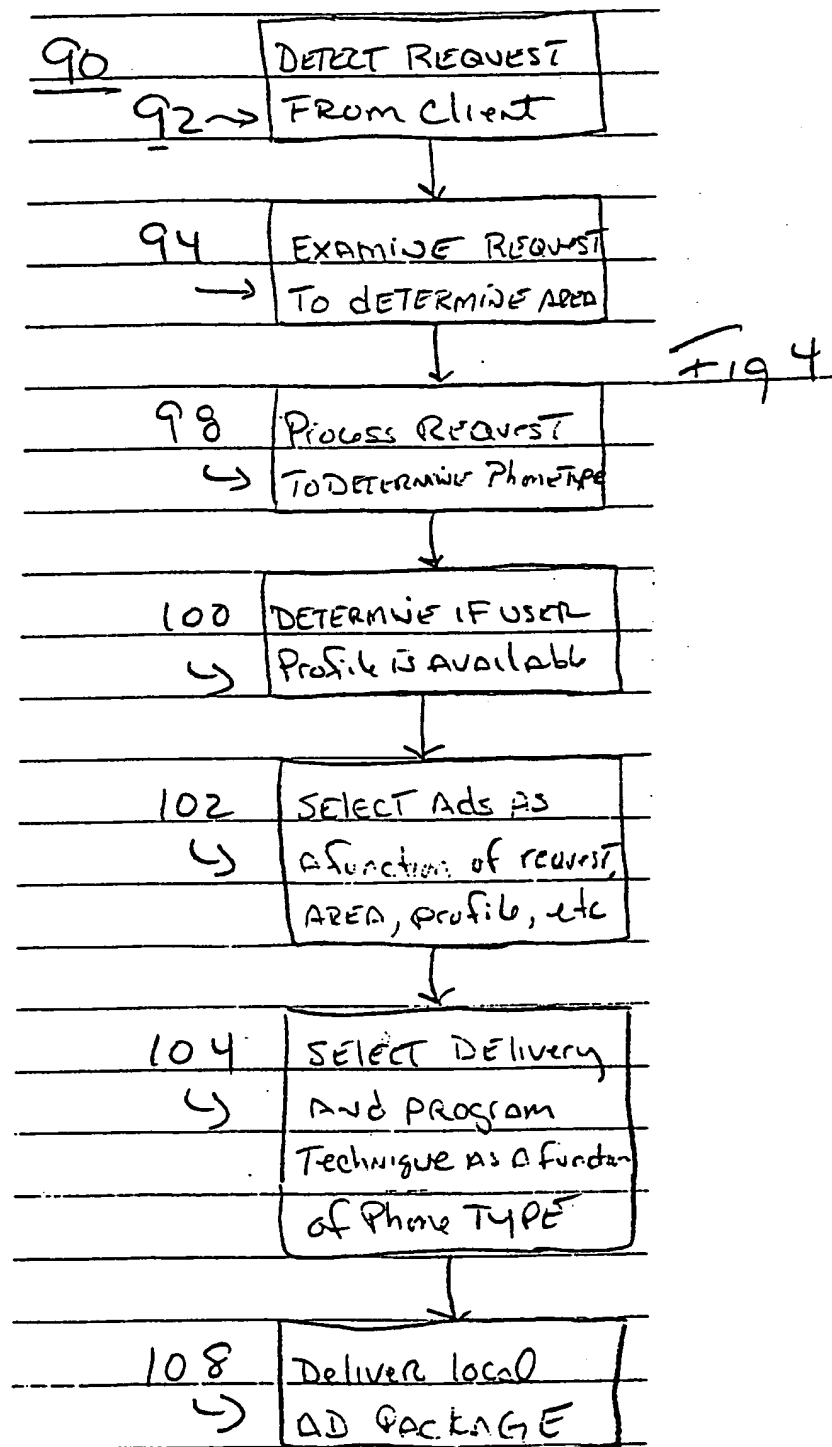 90
DETECT REQUEST
92 FROM Client
94 EXAMINE REQUEST
TO dETERMINE AREA
Fig 4
98 Process REQUEST
TO DETERMINE Phone TYPE
100 DETERMINE IF USER
Profile is AvAilAble
102 SELECT Ads AS
A function of request,
AREA, profile, etc
104 SELECT DElivery
AND PROGRAM
Technique AS A function
of Phone TYPE
108 Deliver local
AD PACKAGE